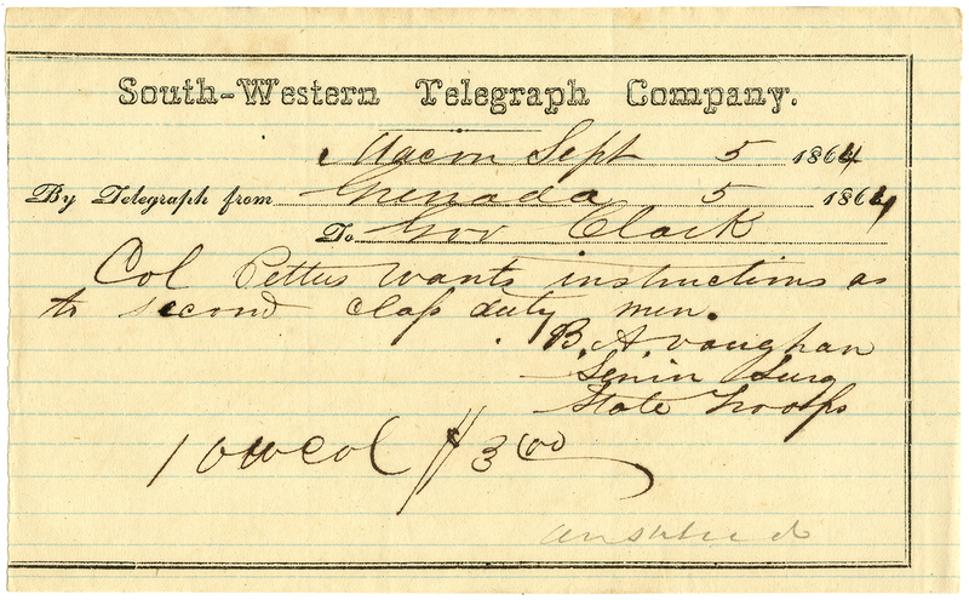 South-Western Telegraph Company.
Macon Sept 5 1864
By Telegraph from Grenada 5 1864
To Gov Clark
Col Pettus wants instructions as
to second class duty men.
B. A. Vaughan
Senior Surg
State Troops
10 W Col $3 00
answered